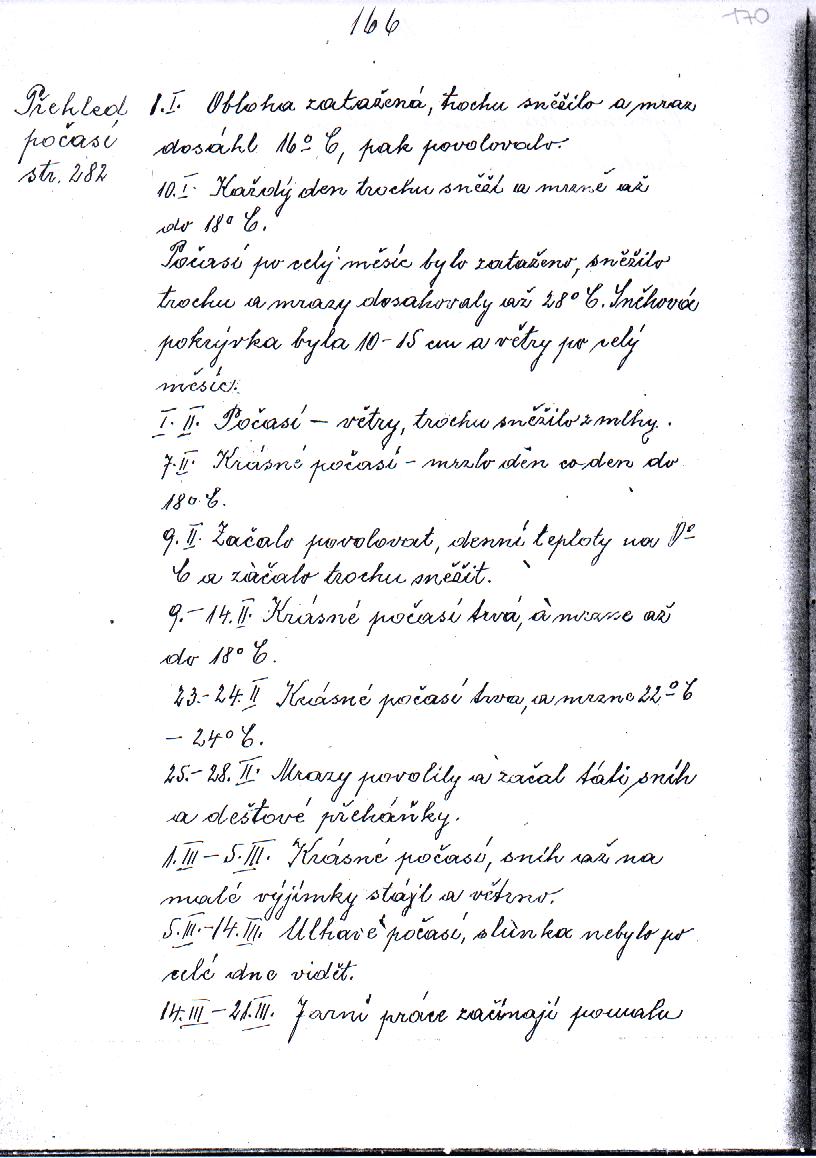 166
170
Přehled
počasí
str. 282
1.I. Obloha zatažená, trochu sněžilo a mraz
dosáhl 16º C, pak povolovalo.
10.I. Každý den trochu sněží a mrzně až
do 18º C.
Počasí po celý měsíc bylo zataženo, sněžilo
trochu a mrazy dosahovaly až 28º C. Sněhová
pokrývka byla 10-15 cm a větry po celý
měsíc.
I. II. Počasí – větry, trochu sněžilo z mlhy.
7.II. Krásné počasí – mrzlo den co den do
18º C.
9.II. Začalo povolovat, denní teploty na 0º
C a začalo trochu sněžit.
9.-14.II. Krásné počasí trvá, a mrzne až
do 18º C.
23.-24.II Krásné počasí trva, a mrzne 22º C
– 24º C.
25.-28.II. Mrazy povolily a začal táti sníh
a deštové přeháňky.
1.III – 5.III. Krásné počasí, sníh až na
malé výjimky stájl a větrno.
5.III.-14.III. Ulhavé počasí, slunka nebylo po
celé dne vidět.
14.III – 21.III. Jarní práce začínají pomalu